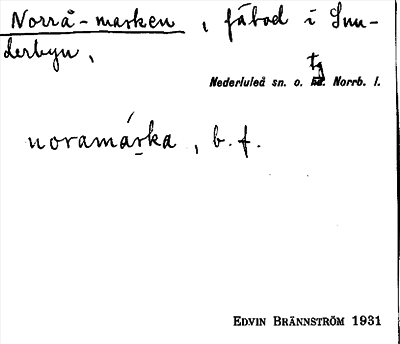 Norrå-marken, fäbod i Sun-
derbyn,
Nederluleå sn. o. tg Norrb. l.
noramárka, b. f.
EDVIN BRÄNNSTRÖM 1931